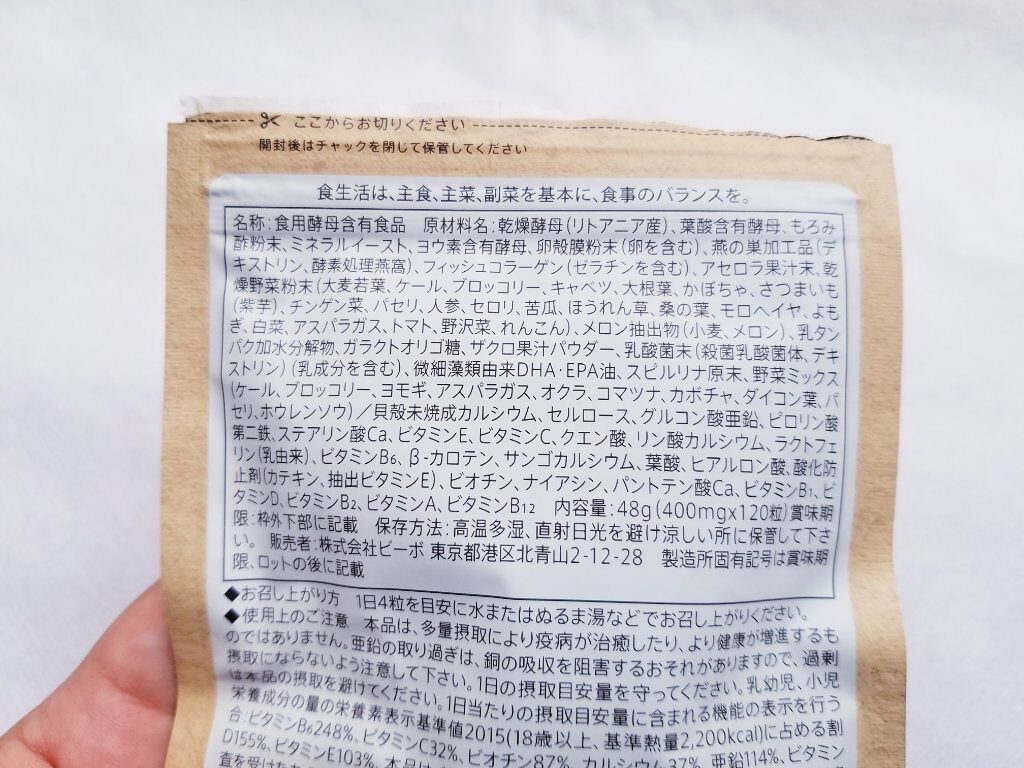 ここからお切りください
開封後はチャックを閉じて保管してください
食生活は、主食、主菜、副菜を基本に、食事のバランスを。
名称:食用酵母含有食品 原材料名:乾燥酵母(リトアニア産)、葉酸含有酵母、もろみ
酢粉末、ミネラルイースト、ヨウ素含有酵母、卵殻膜粉末(卵を含む)、燕の巣加工品(デ
キストリン、酵素処理燕窩)、フィッシュコラーゲン(ゼラチンを含む)、アセロラ果汁末、乾
燥野菜粉末(大麦若葉、ケール、ブロッコリー、キャベツ、大根葉、かぼちゃ、さつまいも
(紫芋)、チンゲン菜、パセリ、人参、セロリ、苦瓜、ほうれん草、桑の葉、モロヘイヤ、よも
ぎ、白菜、アスパラガス、トマト、野沢菜、れんこん)、メロン抽出物(小麦、メロン)、乳タン
パク加水分解物、ガラクトオリゴ糖、ザクロ果汁パウダー、乳酸菌末(殺菌乳酸菌体、デキ
ストリン)(乳成分を含む)、微細藻類由来DHA・EPA油、スピルリナ原末、野菜ミックス
(ケール、ブロッコリー、ヨモギ、アスパラガス、オクラ、コマツナ、カボチャ、ダイコン葉、パ
セリ、ホウレンソウ)/貝殻未焼成カルシウム、セルロース、グルコン酸亜鉛、ピロリン酸
第二鉄、ステアリン酸Ca、ビタミンE、ビタミンC、クエン酸、リン酸カルシウム、ラクトフェ
リン(乳由来)、ビタミンB6、β-カロテン、サンゴカルシウム、葉酸、ヒアルロン酸、酸化防
止剤(カテキン、抽出ビタミンE)、ビオチン、ナイアシン、パントテン酸Ca、ビタミンB1、ビ
タミンD、ビタミンB2、ビタミンA、ビタミンB12 内容量:48g(400mgx120粒)賞味期
限:枠外下部に記載 保存方法:高温多湿、直射日光を避け涼しい所に保管して下さ
い。 販売者:株式会社ビーボ 東京都港区北青山2-12-28 製造所固有記号は賞味期
限、ロットの後に記載
◆お召し上がり方 1日4粒を目安に水またはぬるま湯などでお召し上がりください。
◆使用上のご注意 本品は、多量摂取により疫病が治癒したり、より健康が増進するも
のではありません。亜鉛の取り過ぎは、銅の吸収を阻害するおそれがありますので、過剰
摂取にならないよう注意して下さい。1日の摂取目安量を守ってください。乳幼児、小児
は本品の摂取を避けてください。1日当たりの摂取目安量に含まれる機能の表示を行う
栄養成分の量の栄養素表示基準値2015(18歳以上、基準熱量2,200kcal)に占める割
合:ビタミンB6248%、ビタミンC32%、ビオチン87%、カルシウム37%、亜鉛114%、ビタミン
D155%、ビタミンE103%、本品は
査を受けた